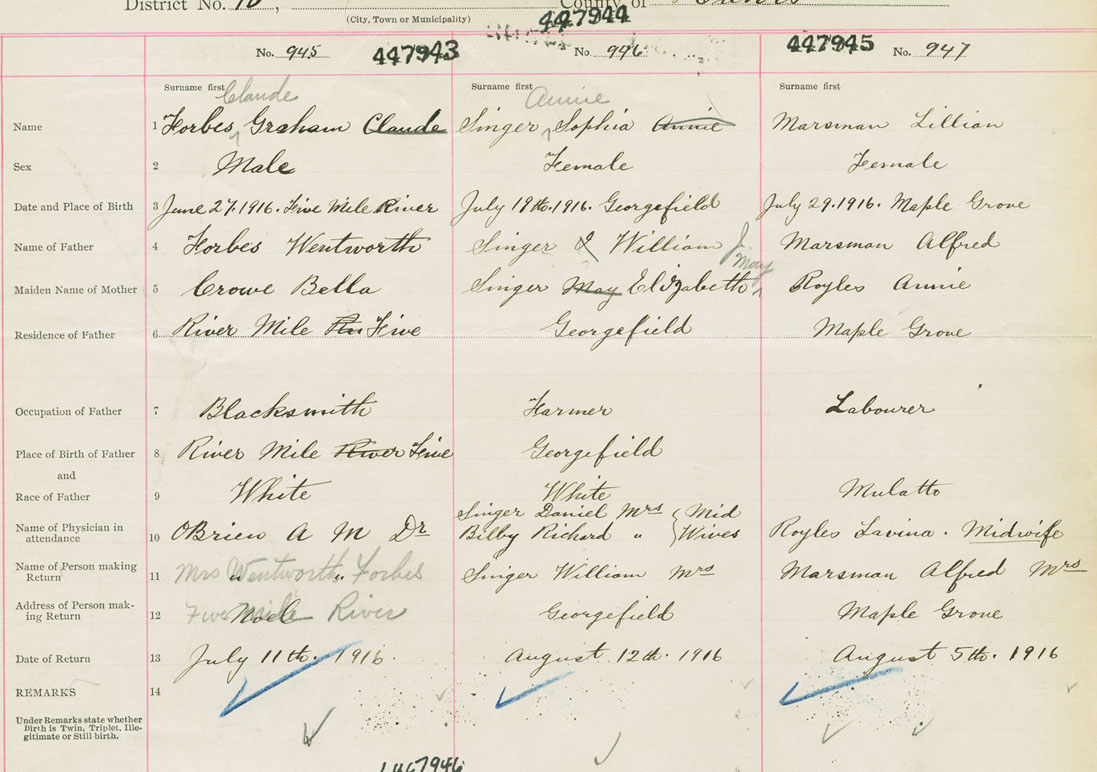 District No. 10, County of
(City, Town or Municipality)
447944
No. 945 447943 No. 946 447945 No. 947
Surname first Surname first Surname first
Claude Annie
Name 1 Forbes, Graham Claude Singer Sophia Annie Marsman Lillian
Sex 2 Male Female Female
Date and Place of Birth 3 June 27.1916. Five Mile River July 19th.1916. Georgefield July 29.1916. Maple Grove
Name of Father 4 Forbes Wentworth Singer & William J. Marsman Alfred
May
Maiden Name of Mother 5 Crowe Bella Singer May Elizabeth Royles Annie
Residence of Father 6 River Mile Five Georgefield Maple Grove
Occupation of Father 7 Blacksmith Farmer Labourer
Place of Birth of Father 8 River Mile River Five Georgefield
and
Race of Father 9 White White Mulatto
Singer Daniel Mrs Mid
Name of Physician in attendance 10 OBrien A M Dr Bilby Richard " Wives Royles Lavina. Midwife
Name of Person making Return 11 Mrs Wentworth Forbes " " Singer William Mrs Marsman Alfred Mrs
Address of Person making Return 12 Five Mile River Noel Georgefield Maple Grove
Date of Return 13 July 11th. 1916. August 12th. 1916 August 5th. 1916
REMARKS 14
Under Remarks state whether
Birth is Twin, Triplet, Ille-
gitimate or Still birth.
447946